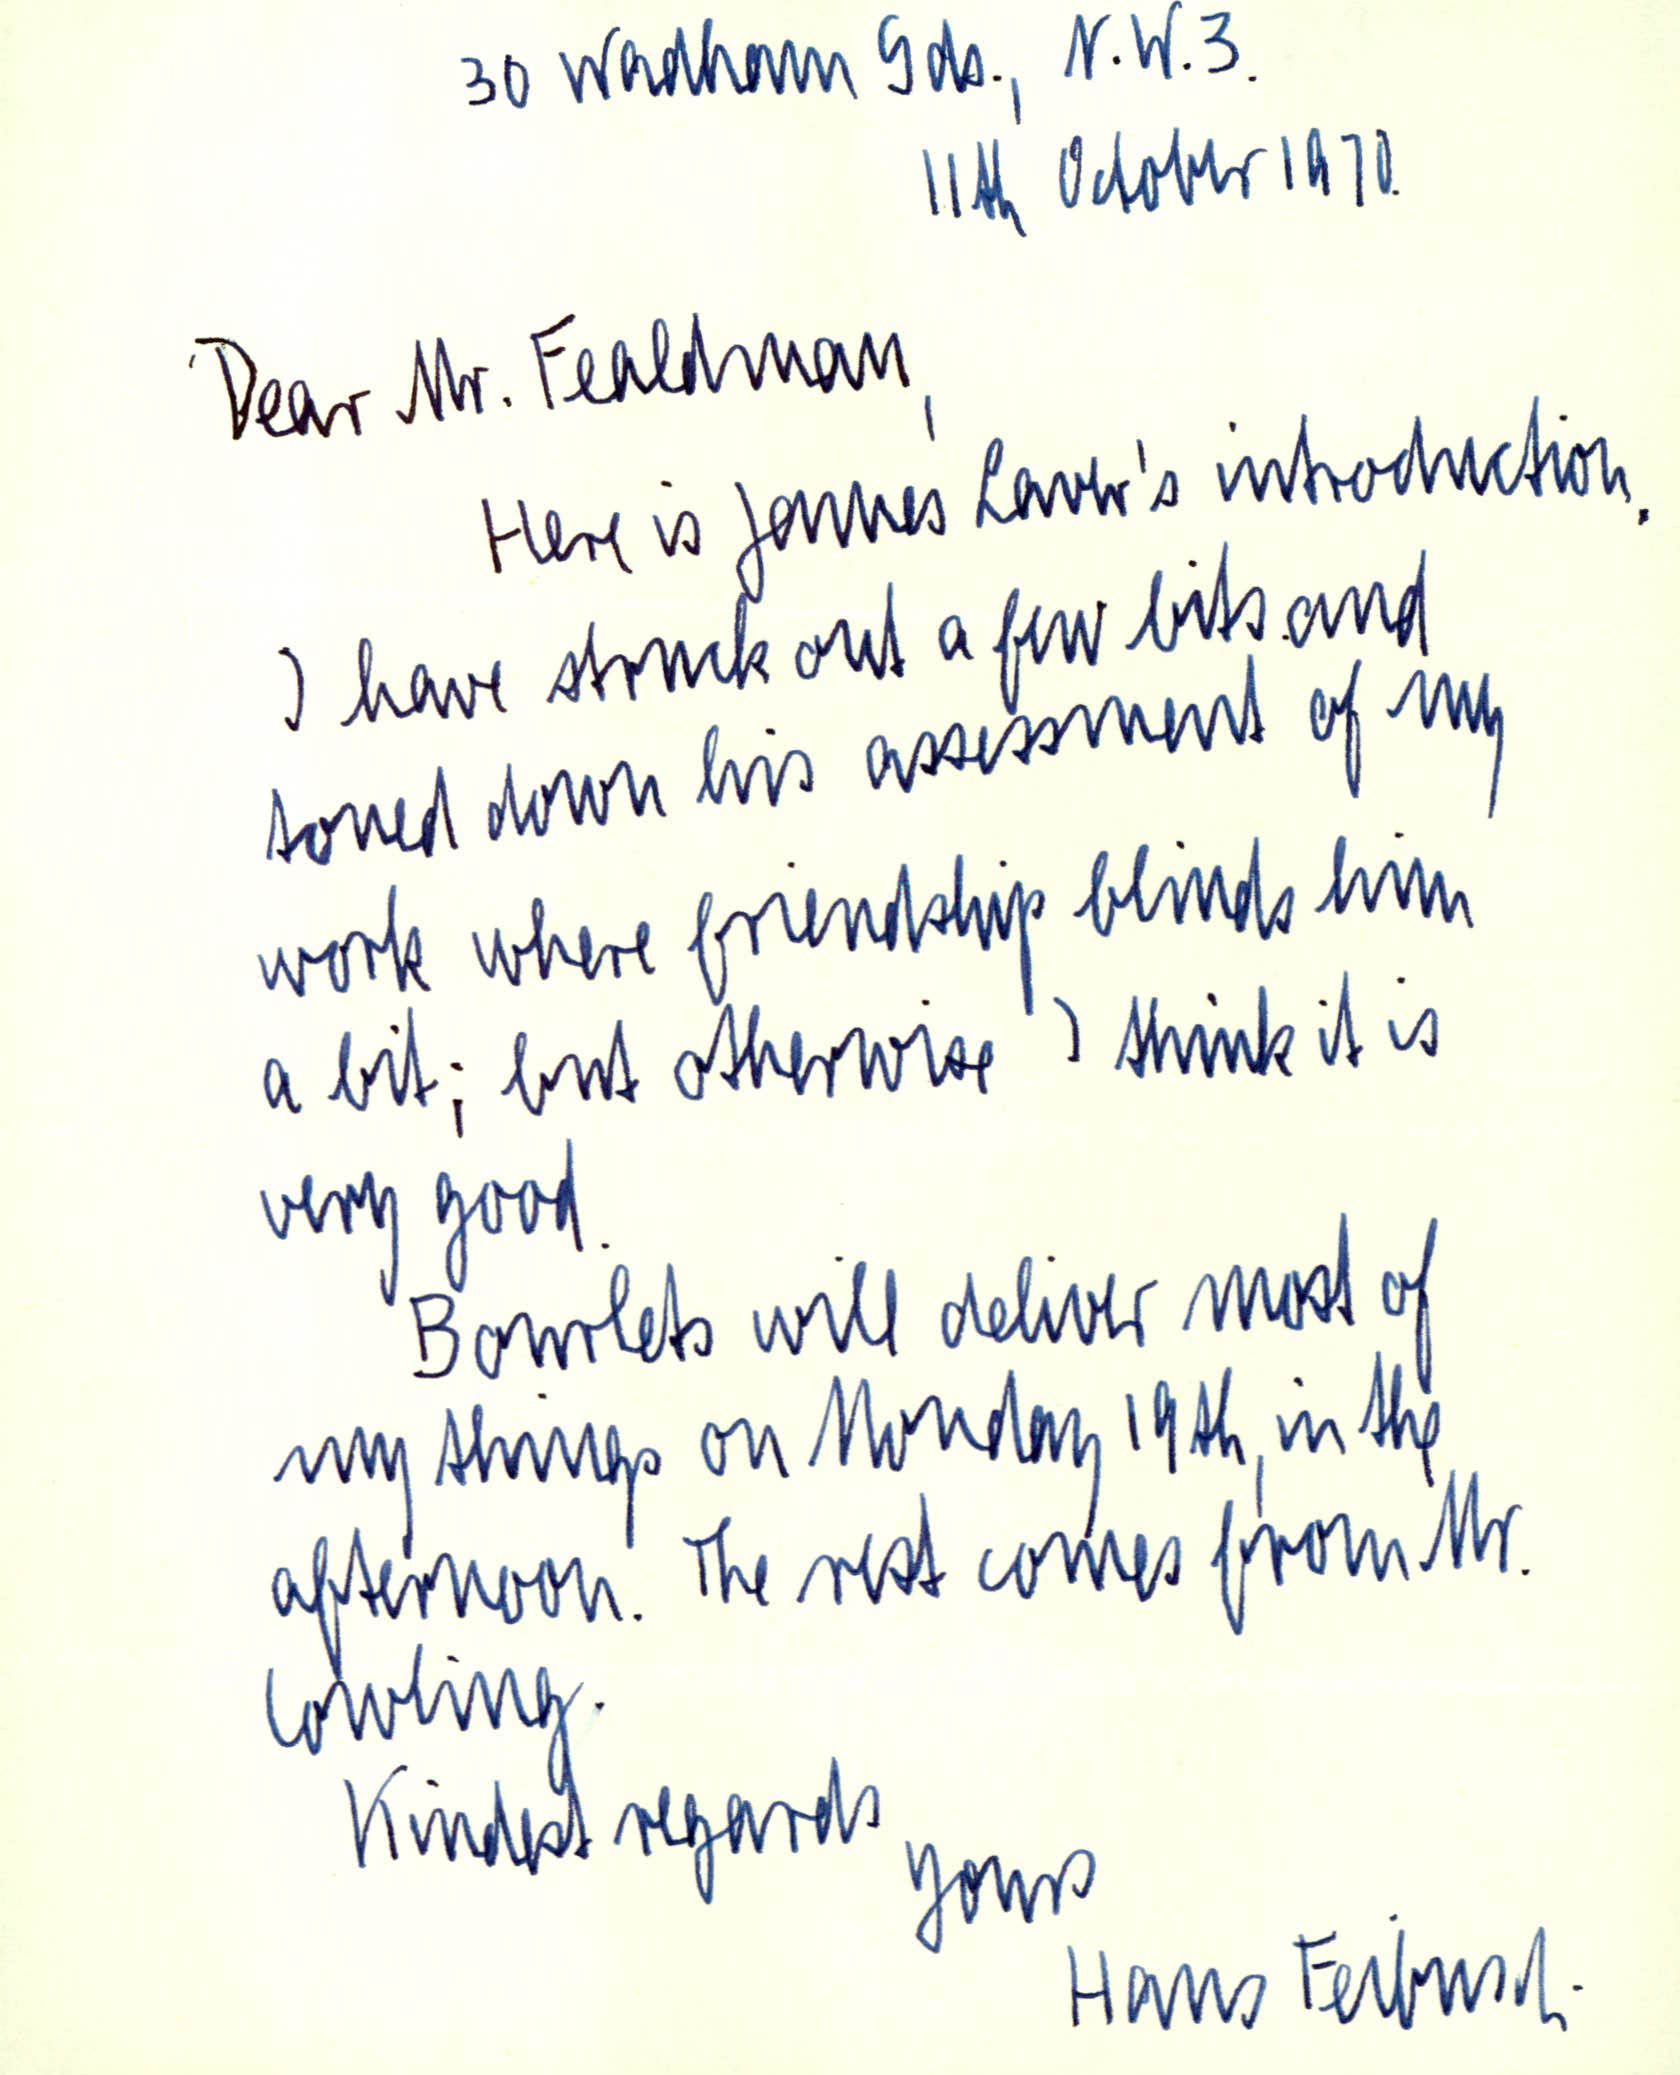 30 Wadham Gds., N.W.3.
11th October 1970.
Dear Mr. Fealdman,
Here is James Laver's introduction.
I have struck out a few bits and
toned down his assessment of my
work where friendship blinds him
a bit; but otherwise I think it is
very good.
Bourlets will deliver most of
my things on Monday 19th, in the
afternoon. The rest comes from Mr.
Cowling.
Kindest regards
Yours
Hans Feibusch.